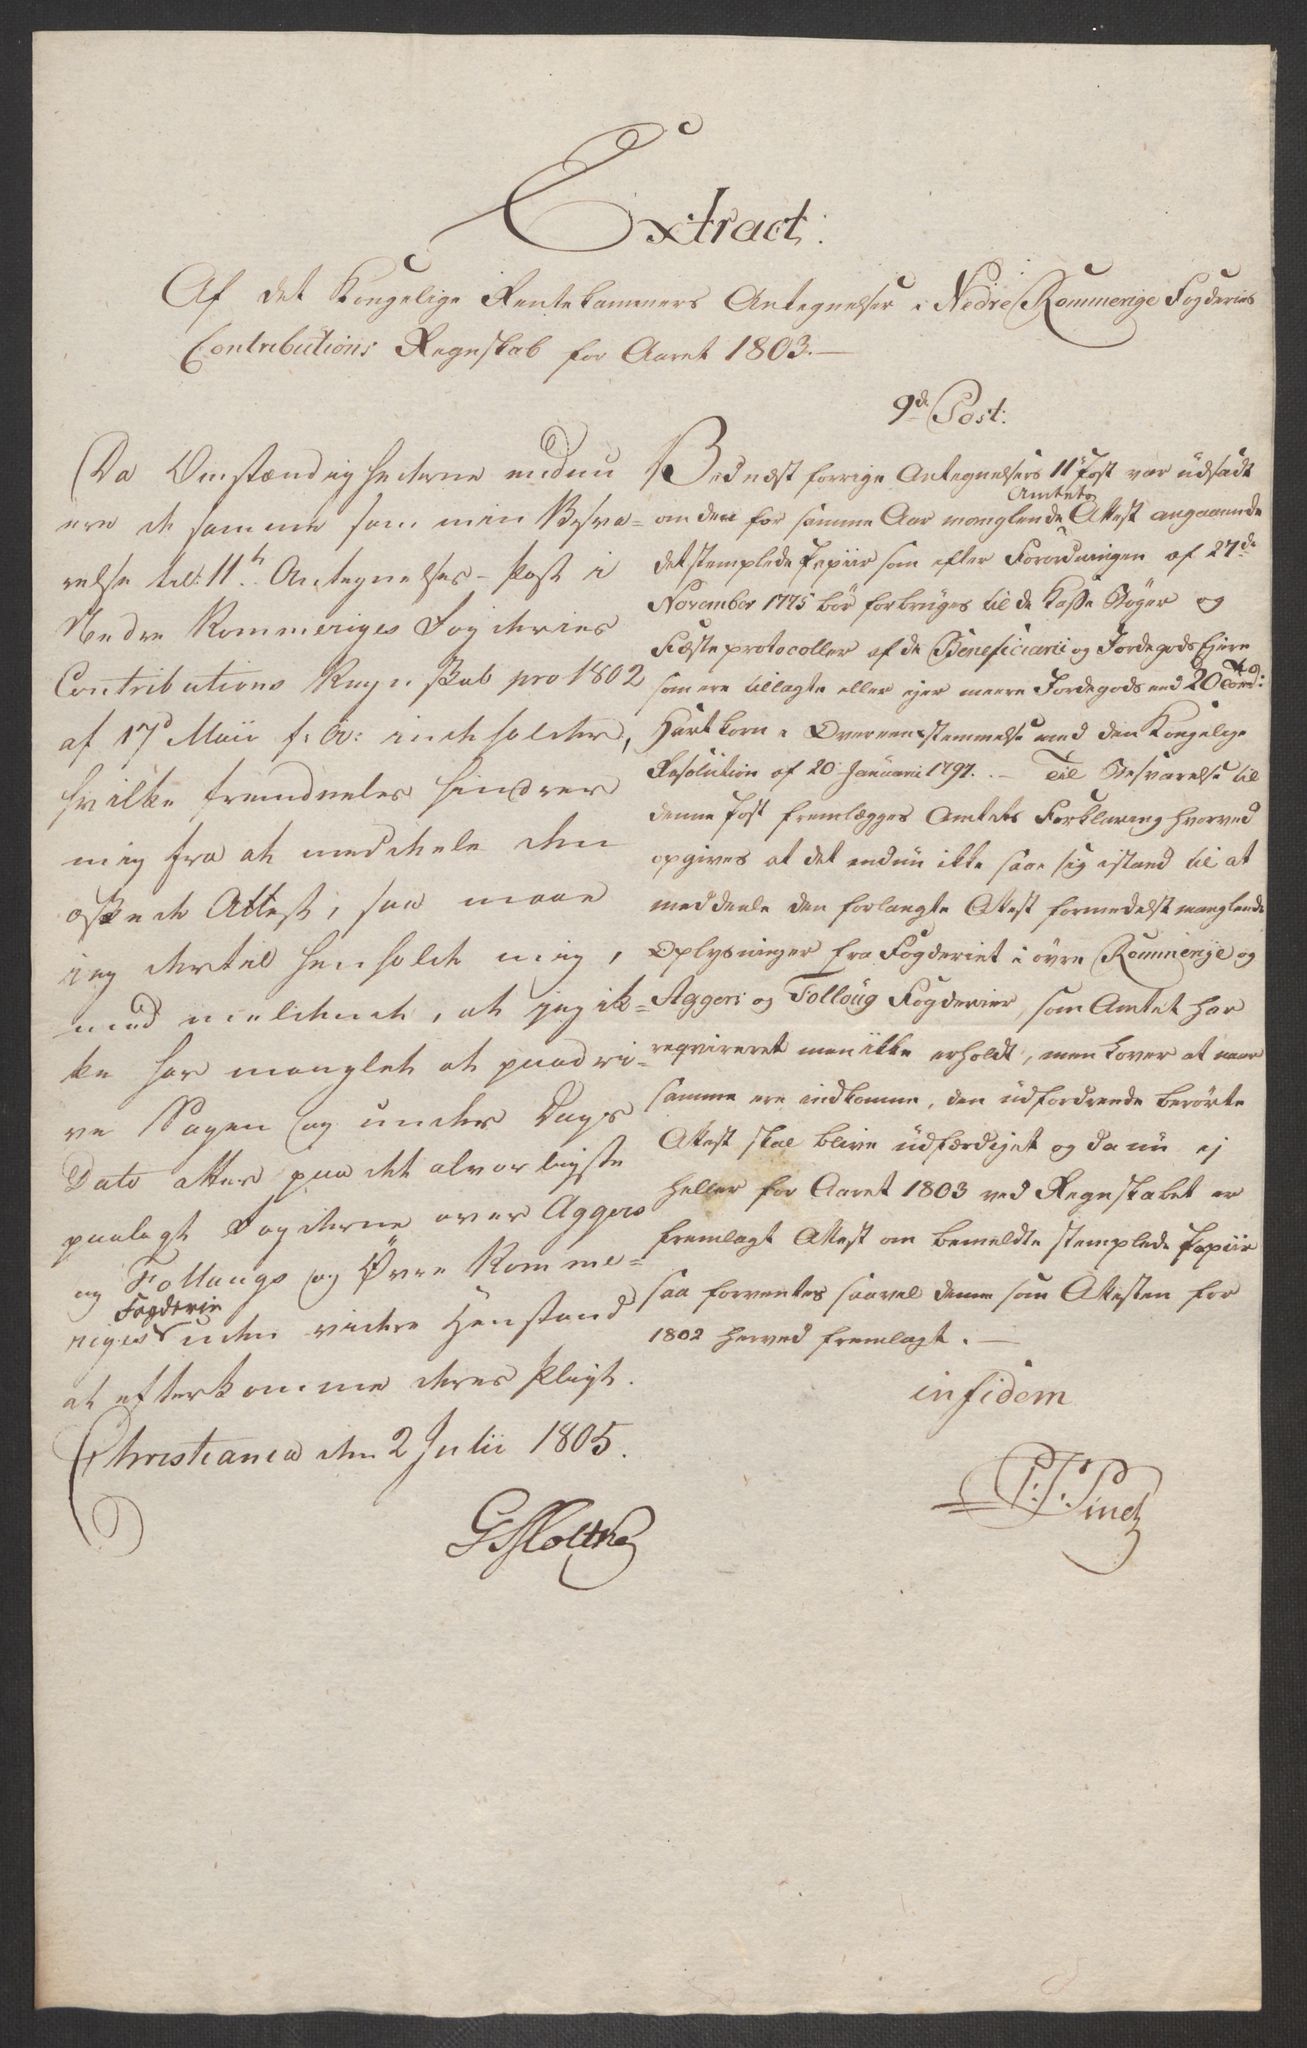 Extract.
Af det Kongelige Rentekammers Antegnelser i Nedre Rommerige Fogderies
Contributions Regnskab for Aaret 1803.—
9de Post.
Ved næst forrige Antegnelsers 11te Post var udsadt
om den for samme Aar manglende Amtets Attest angaaende
det stemplede Papiir som efter Forordningen af 27de
November 1775 bör forbruges til de Kasse Böger og
Fæsteprotocoller af de Beneficiarii og Jordegods Ejere
som ere tillagte eller ejer meere Jordegods end 20 Tönd:
Hartkorn i Overeensstemmelse med den Kongelige
Resolution af 20 Januarii 1797. — Til Besvarelse til
denne Post fremlægges Amtets Forklaring hvorved
opgives at det endnu ikke saae sig istand til at
meddeele den forlangte Attest formedelst manglende
Oplysninger fra Fogderiet i övre Rommerige og
Aggers og Follöug Fogderier, som Amtet har
reqvireret men ikke erholdt, men lover at naar
samme ere indkomne, den udfordrende berörte
Attest skal blive udfærdiget og da nu ej
heller for Aaret 1803 ved Regnskabet er
fremlagt Attest om bemeldte stemplede Papiir
saa forventes saavel denne som Attesten for
1802 herved fremlagt. —
in fidem
P: T: Pinch
Da Omstændighederne endnu
ere de samme som min Besva=
relse til 11te Antegnelses-Post i
Nedre Rommeriges Fogderies
Contributions Regnskab pro 1802
af 17d Maii f: A: indeholder,
hvilke fremdeeles hindrer
mig fra at meddele den
æskede Attest, saa maae
jeg dertil henholde mig,
med meldende, at jeg ik=
ke har manglet at paadri=
ve Sagen og under Dags
Dato atter paa det alvorligste
paalagt Fogderne over Aggers
og Follougs og Övre Romme=
riges Fogderie uden videre Henstand
at efterkomme deres Pligt.
Christiania den 2 Julii 1805.
G Moltke